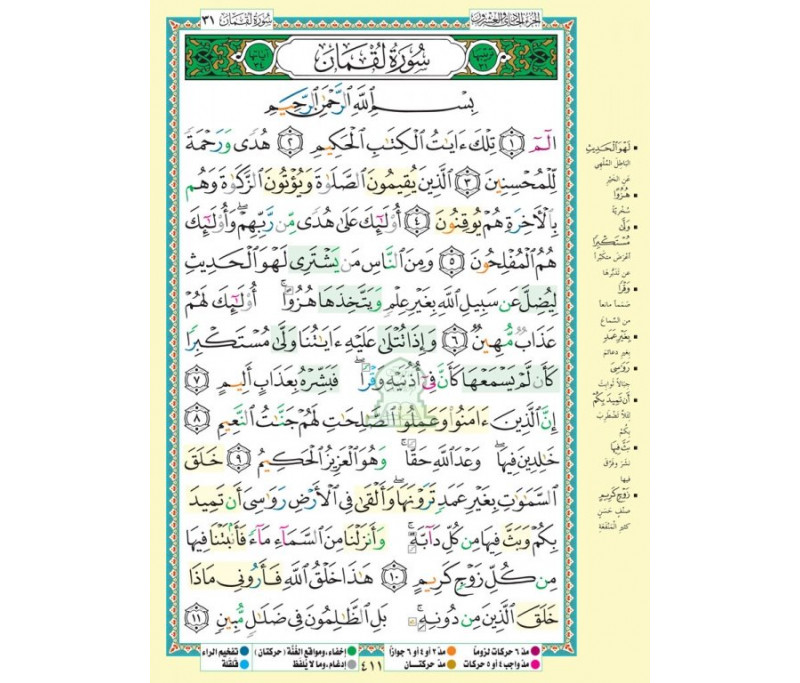 الجزء الحادي والعشرون
سورة لقمان ٣١
سُورَةُ لُقْمَان
بِسْمِ اللَّهِ الرَّحْمَٰنِ الرَّحِيمِ
الٓمٓ ١ تِلْكَ ءَايَٰتُ الْكِتَٰبِ الْحَكِيمِ ٢ هُدًى وَرَحْمَةً
لِّلْمُحْسِنِينَ ٣ الَّذِينَ يُقِيمُونَ الصَّلَوٰةَ وَيُؤْتُونَ الزَّكَوٰةَ وَهُم
بِالْأَخِرَةِ هُمْ يُوقِنُونَ ٤ أُوْلَٰٓئِكَ عَلَىٰ هُدًى مِّن رَّبِّهِمْ ۖ وَأُوْلَٰٓئِكَ
هُمُ الْمُفْلِحُونَ ٥ وَمِنَ النَّاسِ مَن يَشْتَرِى لَهْوَ الْحَدِيثِ
لِيُضِلَّ عَن سَبِيلِ اللَّهِ بِغَيْرِ عِلْمٍ وَيَتَّخِذَهَا هُزُوًا ۚ أُوْلَٰٓئِكَ لَهُمْ
عَذَابٌ مُّهِينٌ ٦ وَإِذَا تُتْلَىٰ عَلَيْهِ ءَايَٰتُنَا وَلَّىٰ مُسْتَكْبِرًا
كَأَن لَّمْ يَسْمَعْهَا كَأَنَّ فِىٓ أُذُنَيْهِ وَقْرًا ۖ فَبَشِّرْهُ بِعَذَابٍ أَلِيمٍ ٧
إِنَّ الَّذِينَ ءَامَنُوا وَعَمِلُوا الصَّٰلِحَٰتِ لَهُمْ جَنَّٰتُ النَّعِيمِ ٨
خَٰلِدِينَ فِيهَا ۖ وَعْدَ اللَّهِ حَقًّا ۚ وَهُوَ الْعَزِيزُ الْحَكِيمُ ٩ خَلَقَ
السَّمَٰوَٰتِ بِغَيْرِ عَمَدٍ تَرَوْنَهَا ۖ وَأَلْقَىٰ فِى الْأَرْضِ رَوَٰسِىَ أَن تَمِيدَ
بِكُمْ وَبَثَّ فِيهَا مِن كُلِّ دَآبَّةٍ ۚ وَأَنزَلْنَا مِنَ السَّمَآءِ مَآءً فَأَنۢبَتْنَا فِيهَا
مِن كُلِّ زَوْجٍ كَرِيمٍ ١٠ هَٰذَا خَلْقُ اللَّهِ فَأَرُونِى مَاذَا
خَلَقَ الَّذِينَ مِن دُونِهِۦ ۚ بَلِ الظَّٰلِمُونَ فِى ضَلَٰلٍ مُّبِينٍ ١١
لَهْوَ الْحَدِيثِ
الباطل المُلهي
عن الخير
هُزُوًا
سخرية
وَلَّىٰ
مُسْتَكْبِرًا
أعرض متكبرا
عن تدبرها
وَقْرًا
صمما مانعا
من السماع
بِغَيْرِ عَمَدٍ
بغير دعائم
رَوَٰسِىَ
جبالا ثوابت
أَن تَمِيدَ بِكُمْ
لئلا تضطرب
بكم
بَثَّ فِيهَا
نشر وفرق
فيها
زَوْجٍ كَرِيمٍ
صنف حسن
كثير المنفعة
مدّ ٦ حركات لزوماً مدّ ٢ أو ٤ أو ٦ جوازاً إخفاء، ومواقع الغُنَّة (حركتان) تفخيم الراء
مدّ واجب ٤ أو ٥ حركات مدّ حركتان ٤١١ إدغام، وما لا يُلفظ قلقلة